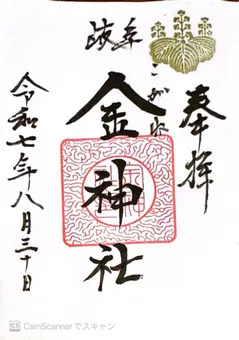 奉拝
岐阜
こがね
金神社
令和七年八月三十日
CS CamScannerでスキャン